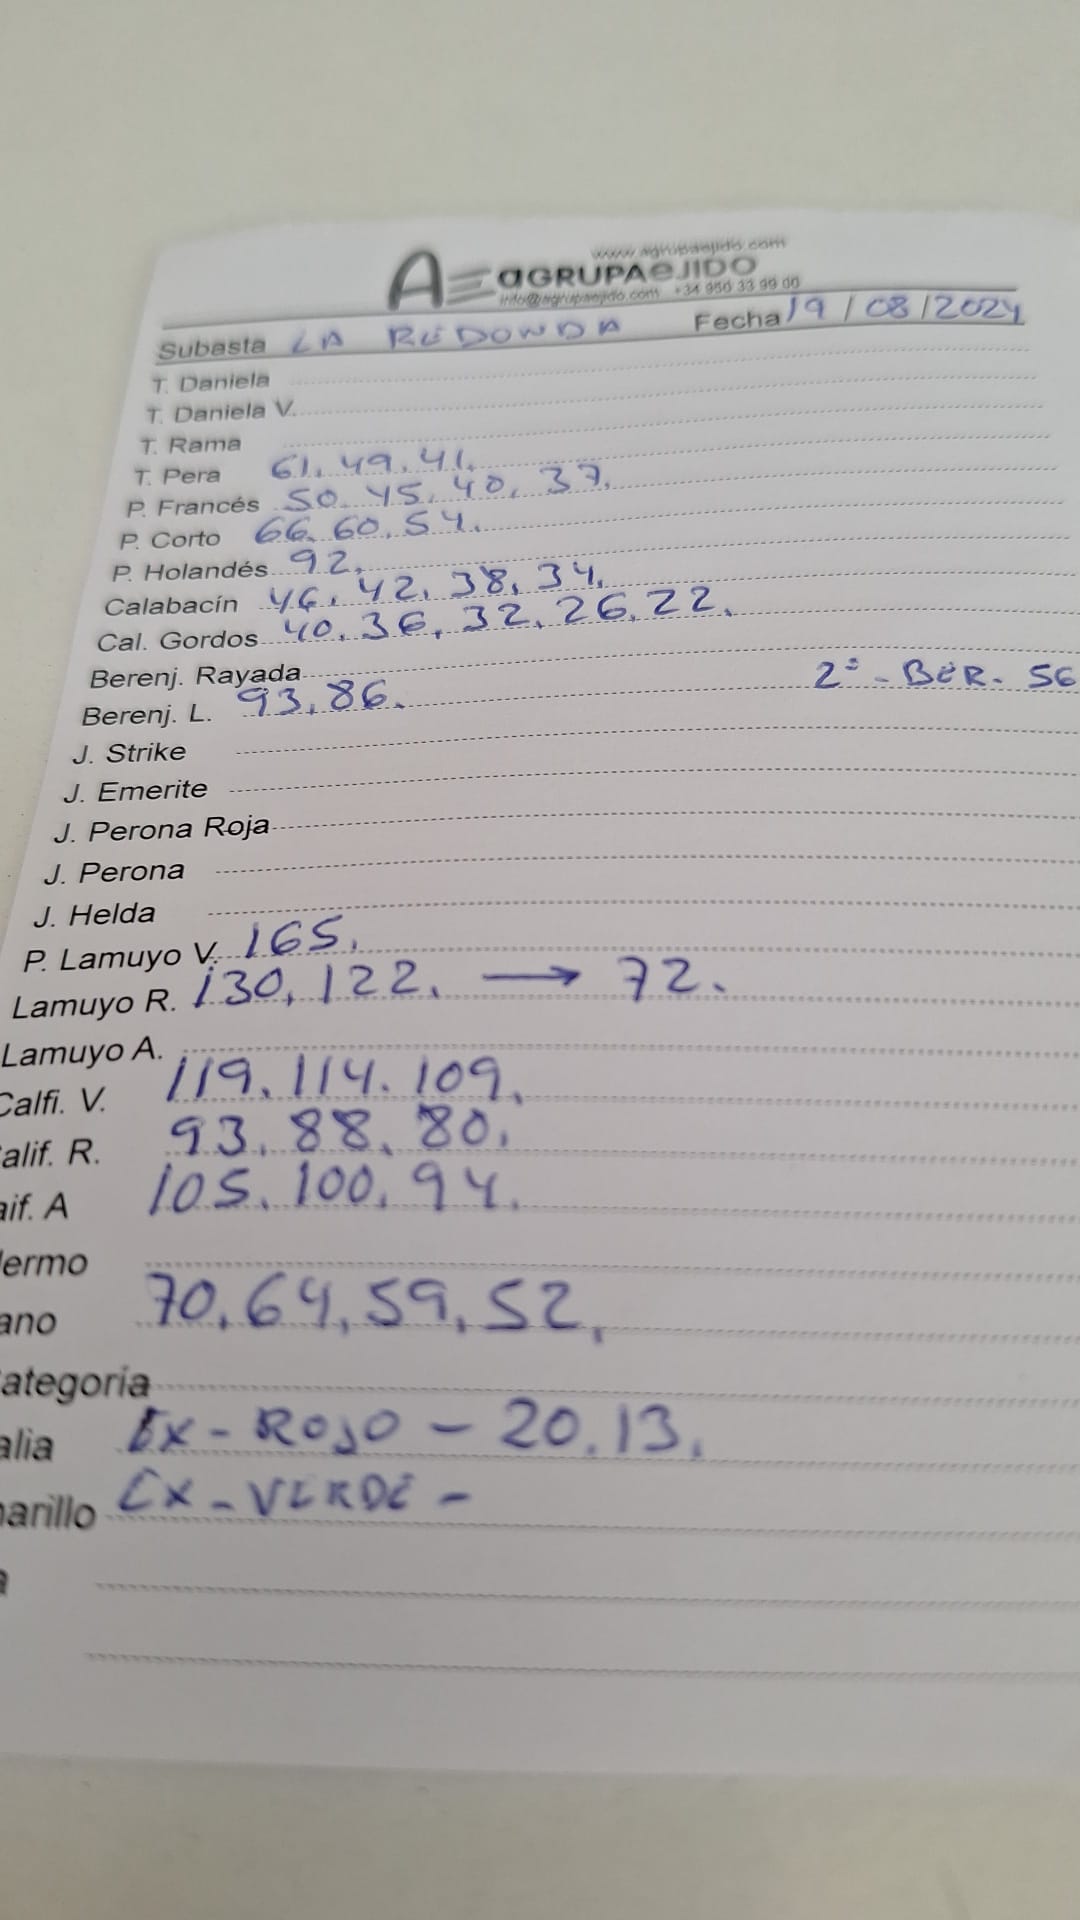 www.agrupaejido.com
AE aGRUPAeJIDO
info@agrupaejido.com +34 950 33 99 00
Subasta LA REDONDA Fecha 19/08/2024
T. Daniela
T. Daniela V.
T. Rama
T. Pera 61. 49. 41.
P. Francés 50. 45. 40. 37.
P. Corto 66. 60. 54.
P. Holandés 92.
Calabacín 46. 42. 38. 34.
Cal. Gordos 40. 36. 32. 26. 22.
Berenj. Rayada
Berenj. L. 93. 86. 2ª - BER. 56
J. Strike
J. Emerite
J. Perona Roja
J. Perona
J. Helda
P. Lamuyo V. 165.
Lamuyo R. 130. 122. → 72.
Lamuyo A.
Calfi. V. 119. 114. 109.
alif. R. 93. 88. 80.
aif. A 105. 100. 94.
lermo
ano 70. 64. 59. 52.
ategoria
alia EX - ROJO - 20. 13.
arillo EX - VERDE -